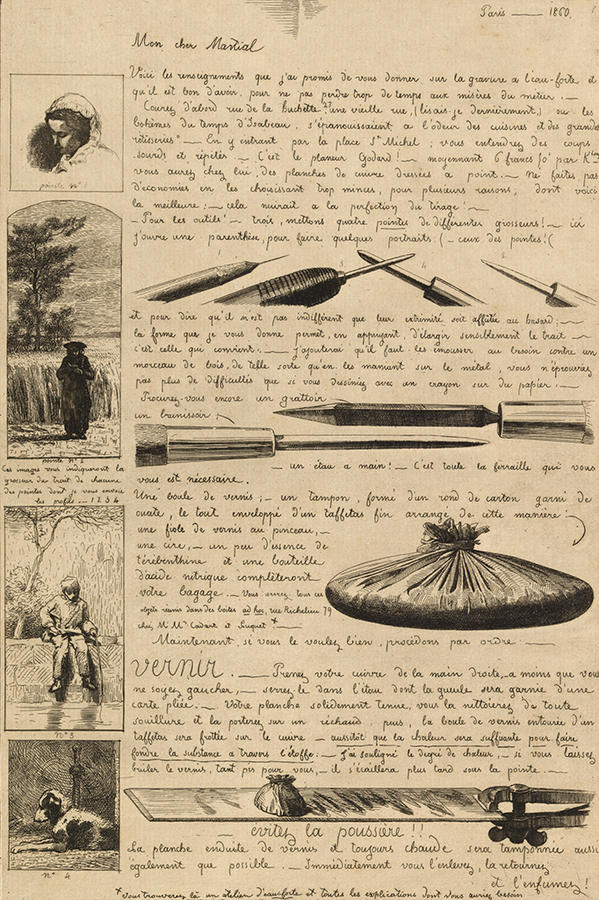 Paris —— 1860.
Mon cher Martial
Voici les renseignements que j'ai promis de vous donner sur la gravure à l'eau-forte et
qu'il est bon d'avoir pour ne pas perdre trop de temps aux misères du métier. —
Courez d'abord rue de la huchette, "une vieille rue, (lisais-je dernièrement,) où les
bohêmes du temps d'Isabeau, s'épanouissaient à l'odeur des cuisines et des grandes
rôtisseries" — En y entrant par la place St Michel; vous entendrez des coups
sourds et répétés — C'est le planeur Godard! — moyennant 6 francs 50 par K
vous aurez chez lui, des planches de cuivre dressées à point. — Ne faites pas
d'économies en les choisissant trop minces, pour plusieurs raisons, dont voici
la meilleure: — cela nuirait à la perfection du tirage. —
— Pour les outils: — trois, mettons quatre pointes de différentes grosseurs! — ici
j'ouvre une parenthèse, pour faire quelques portraits. ( — ceux des pointes!(
3. 4 5
et pour dire qu'il n'est pas indifférent que leur extrémité soit affutée au hasard; —
la forme que je vous donne permet, en appuyant, d'élargir sensiblement le trait —
c'est celle qui convient. — J'ajouterai qu'il faut les émousser au besoin contre un
morceau de bois, de telle sorte qu'en les maniant sur le métal, vous n'éprouviez
pas plus de difficultés que si vous dessiniez avec un crayon sur du papier. —
Procurez-vous encore un grattoir
un brunissoir;
— un étau à main! — C'est toute la ferraille qui vous
vous est nécessaire.
Une boule de vernis; — un tampon, formé d'un rond de carton garni de
ouate, le tout enveloppé d'un taffetas fin arrangé de cette manière:
une fiole de vernis au pinceau, —
une cire, — un peu d'essence de
térébenthine et une bouteille
d'acide nitrique compléteront
votre bagage. — Vous aurez tous ces
objets réunis dans des boites ad hoc, rue Richelieu 79
chez M Mrs Cadart et Luquet +—
Maintenant, si vous le voulez bien, procédons par ordre. —
VERNIR. — Prenez votre cuivre de la main droite, à moins que vous
ne soyez gaucher, — serrez le dans l'étau dont la gueule sera garnie d'une
carte pliée. — Votre planche solidement tenue, vous la nettoierez de toute
souillure et la porterez sur un réchaud puis, la boule de vernis entourée d'un
taffetas sera frottée sur le cuivre — aussitôt que la chaleur sera suffisante pour faire
fondre la substance à travers l'étoffe. — J'ai souligné le dégré de chaleur, — si vous laissez
bruler le vernis, tant pis pour vous, — il s'écaillera plus tard sous la pointe. —
— évitez la poussière!!
La planche enduite de vernis et toujours chaude sera tamponnée aussi
également que possible. — Immédiatement vous l'enlevez, la retournez
et l'enfumez!
+ Vous trouverez là un atelier d'eauforte et toutes les explications dont vous auriez besoin
pointe No
pointe No 2
Ces images vous indiqueront la
grosseur du trait de chacune
des pointes dont je vous envoie
les profils — 1 2 3 4
No 3
No 4